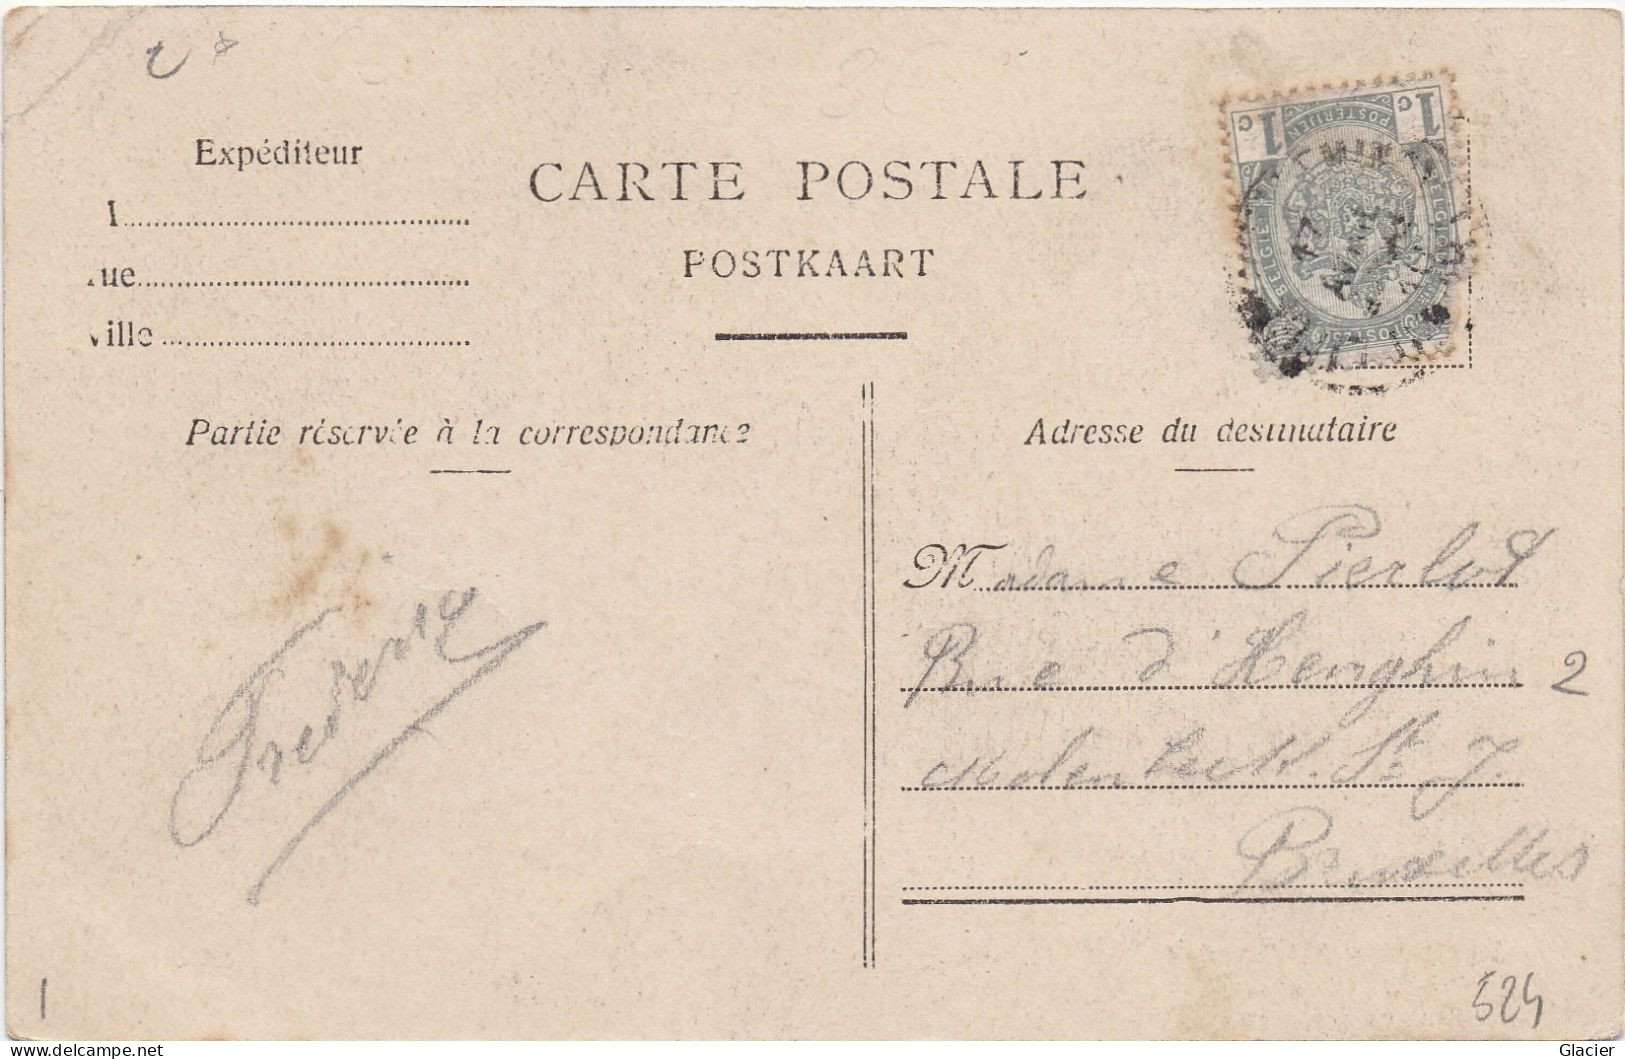 Expéditeur
CARTE POSTALE
POSTKAART
rue
ville
Partie réservée à la correspondance
Adresse du destinataire
1c 1c
POSTERIJEN
BELGIË BELGIQUE
POSTES
17
AVRIL
Madame Pierlot
Rue d'Henghin 2
Molenbeek. St J.
Bruxelles
Frederic
1
524
www.delcampe.net
Glacier